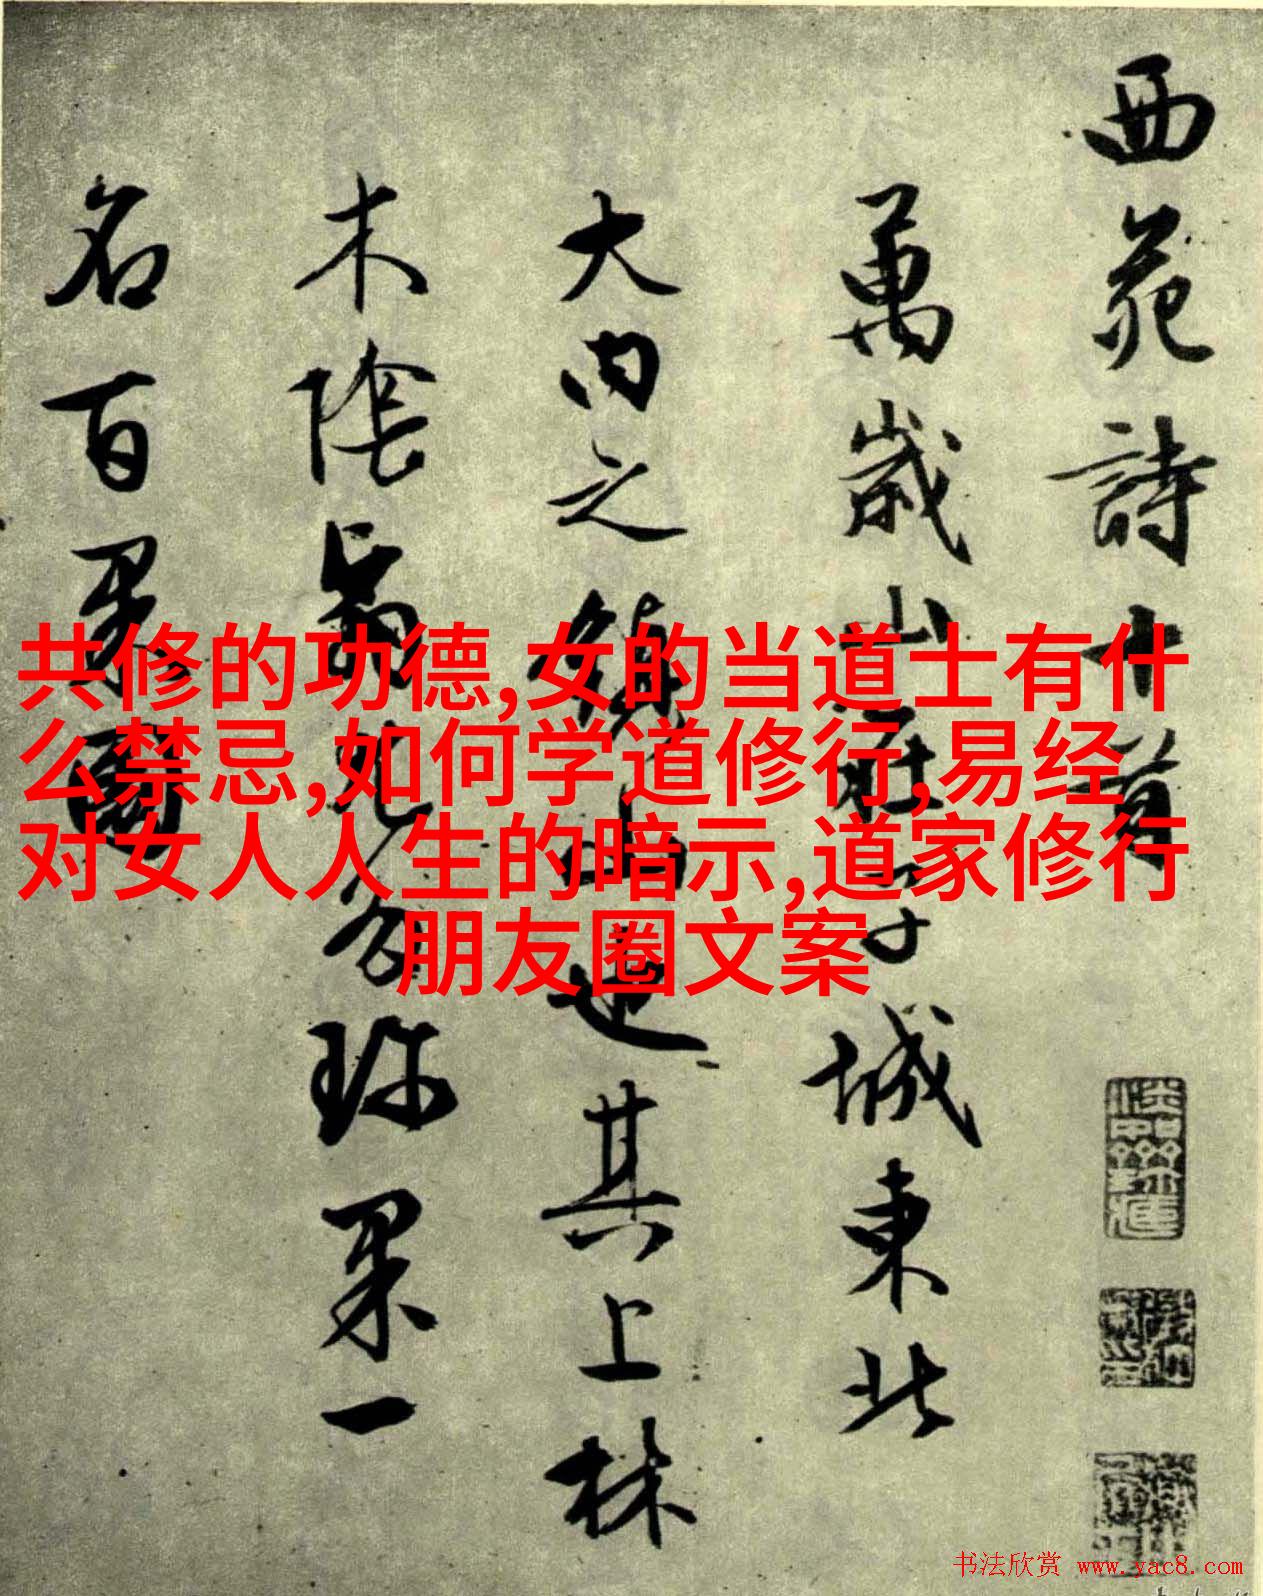 西苑詩十首
萬歲山在子城東北
大内之鎮山也其上林
木陰翳尤多珍果一
名百果園
共修的功德,女的当道士有什
么禁忌,如何学道修行,易经
对女人人生的暗示,道家修行
朋友圈文案
书法欣赏 www.yac8.com